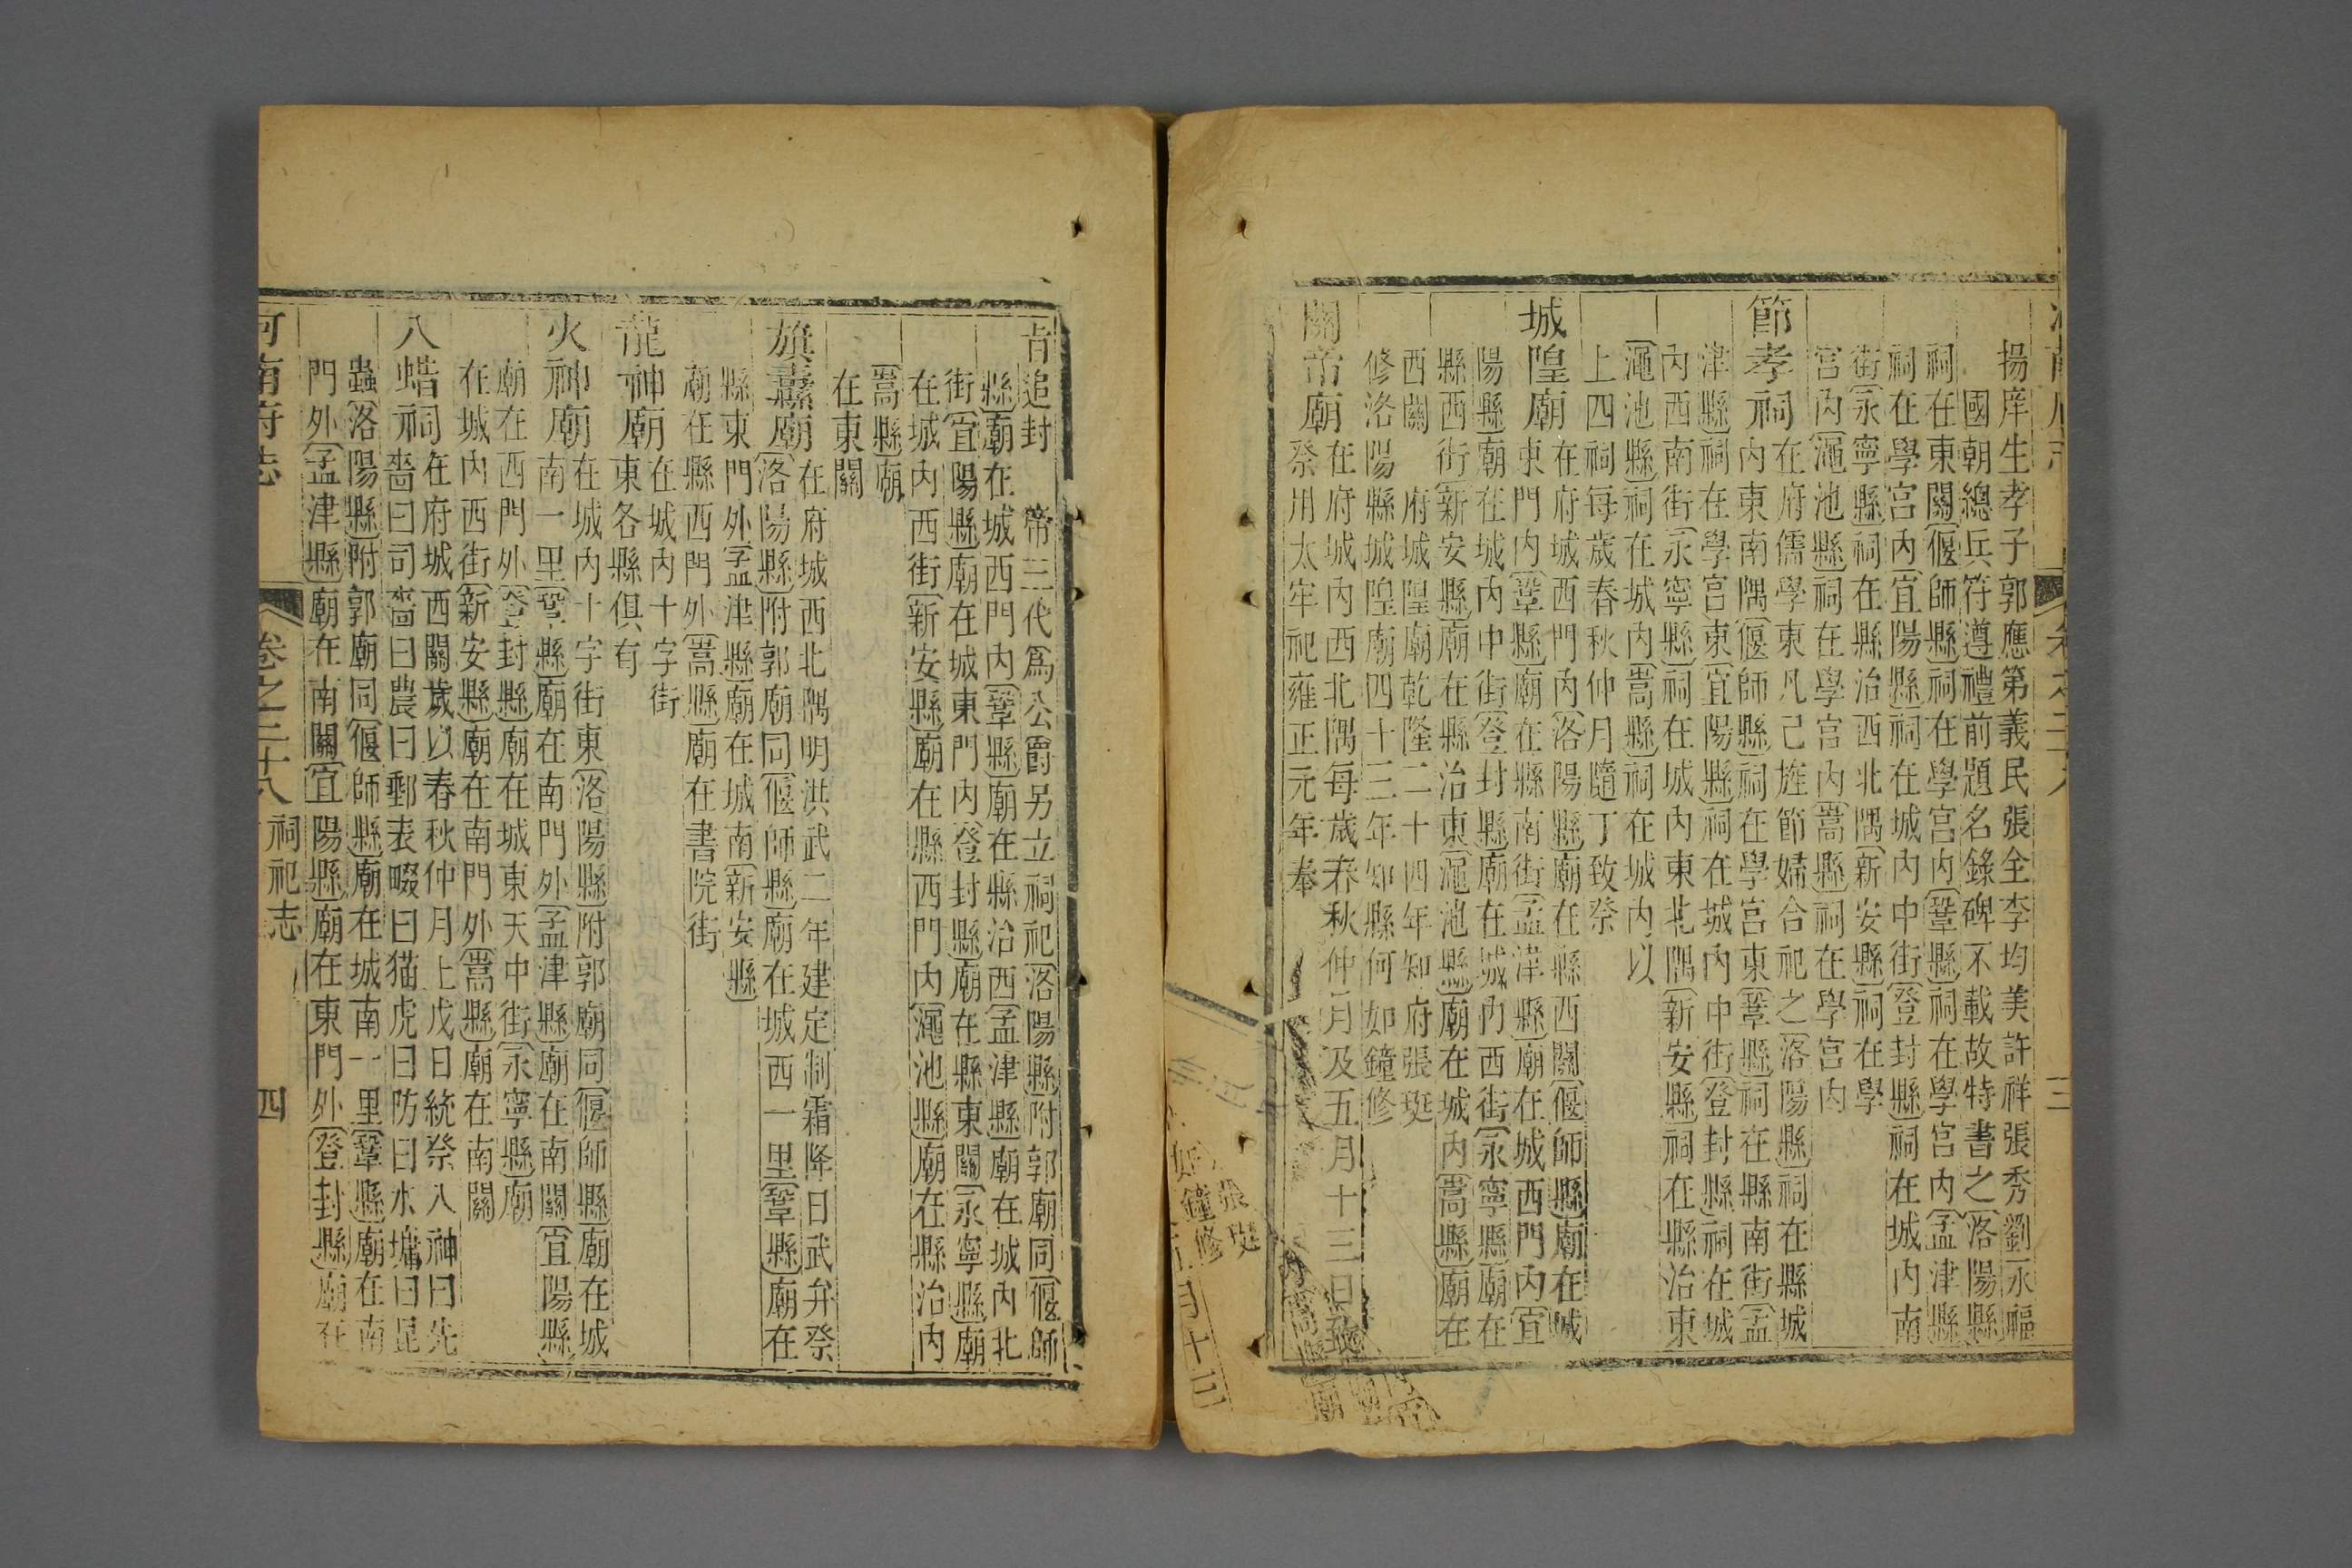 揚庠生孝子郭應第義民張全李均美許祥張秀劉永福
國朝總兵符遵禮前題名錄碑不載故特書之洛陽縣
祠在東關偃師縣祠在學宮內鞏縣祠在學宮內孟津縣
祠在學宮內宜陽縣祠在城內中街登封縣祠在城內南
街永寧縣祠在縣治西北隅新安縣祠在學
宮內澠池縣祠在學宮內嵩縣祠在學宮內
節孝祠
在府儒學東凡已旌節婦合祀之洛陽縣祠在縣城
內東南隅偃師縣祠在學宮東鞏縣祠在縣南街孟
津縣祠在學宮東宜陽縣祠在城內中街登封縣祠在城
內西南街永寧縣祠在城內東北隅新安縣祠在縣治東
澠池縣祠在城內嵩縣祠在城內以
上四祠每歲春秋仲月隨丁致祭
城隍廟
在府城西門內洛陽縣廟在縣西關偃師縣廟在城
東門內鞏縣廟在縣南街孟津縣廟在城西門內宜
陽縣廟在城內中街登封縣廟在城內西街永寧縣廟在
縣西街新安縣廟在縣治東澠池縣廟在城內嵩縣廟在
西關 府城隍廟乾隆二十四年知府張珽
修洛陽縣城隍廟四十三年知縣何如鐘修
關帝廟
在府城內西北隅每歲春秋仲月及五月十三日致
祭用太牢祀雍正元年奉
旨追封 帝三代為公爵另立祠祀洛陽縣附郭廟同偃師
縣廟在城西門內鞏縣廟在縣治西孟津縣廟在城內北
街宜陽縣廟在城東門內登封縣廟在縣東關永寧縣廟
在城內西街新安縣廟在縣西門內澠池縣廟在縣治內
嵩縣廟
在東關
旗纛廟
在府城西北隅明洪武二年建定制霜降日武弁祭
洛陽縣附郭廟同偃師縣廟在城西一里鞏縣廟在
縣東門外孟津縣廟在城南新安縣
廟在縣西門外嵩縣廟在書院街
龍神廟
在城內十字街
東各縣俱有
火神廟
在城內十字街東洛陽縣附郭廟同偃師縣廟在城
南一里鞏縣廟在南門外孟津縣廟在南關宜陽縣
廟在西門外登封縣廟在城東天中街永寧縣廟
在城內西街新安縣廟在南門外嵩縣廟在南關
八蜡祠
在府城西關歲以春秋仲月上戊日統祭八神曰先
嗇曰司嗇曰農曰郵表畷曰猫虎曰防曰水墉曰昆
蟲洛陽縣附郭廟同偃師縣廟在城南一里鞏縣廟在南
門外孟津縣廟在南關宜陽縣廟在東門外登封縣廟在
河南府志
卷之二十八 祠祀志
四